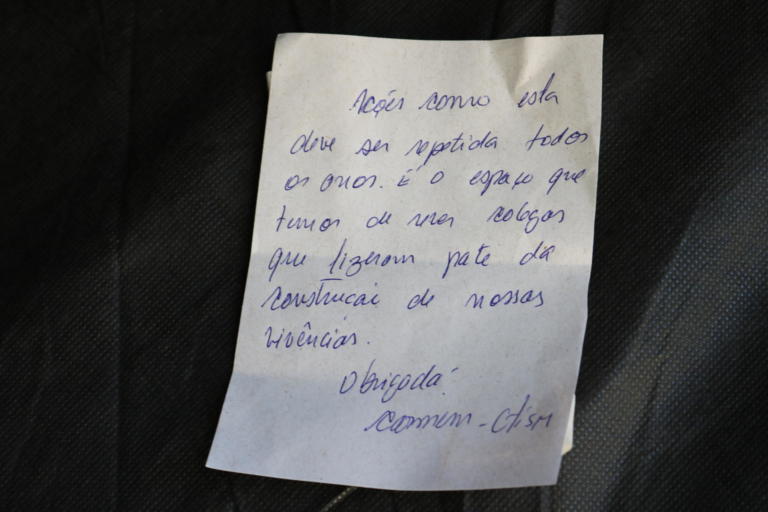 Ações como esta
deve ser repetida todos
os anos. É o espaço que
temos de rever colegas
que fizeram pate da
construção de nossas
vivências.
Obrigada!
Carmem - CTISM